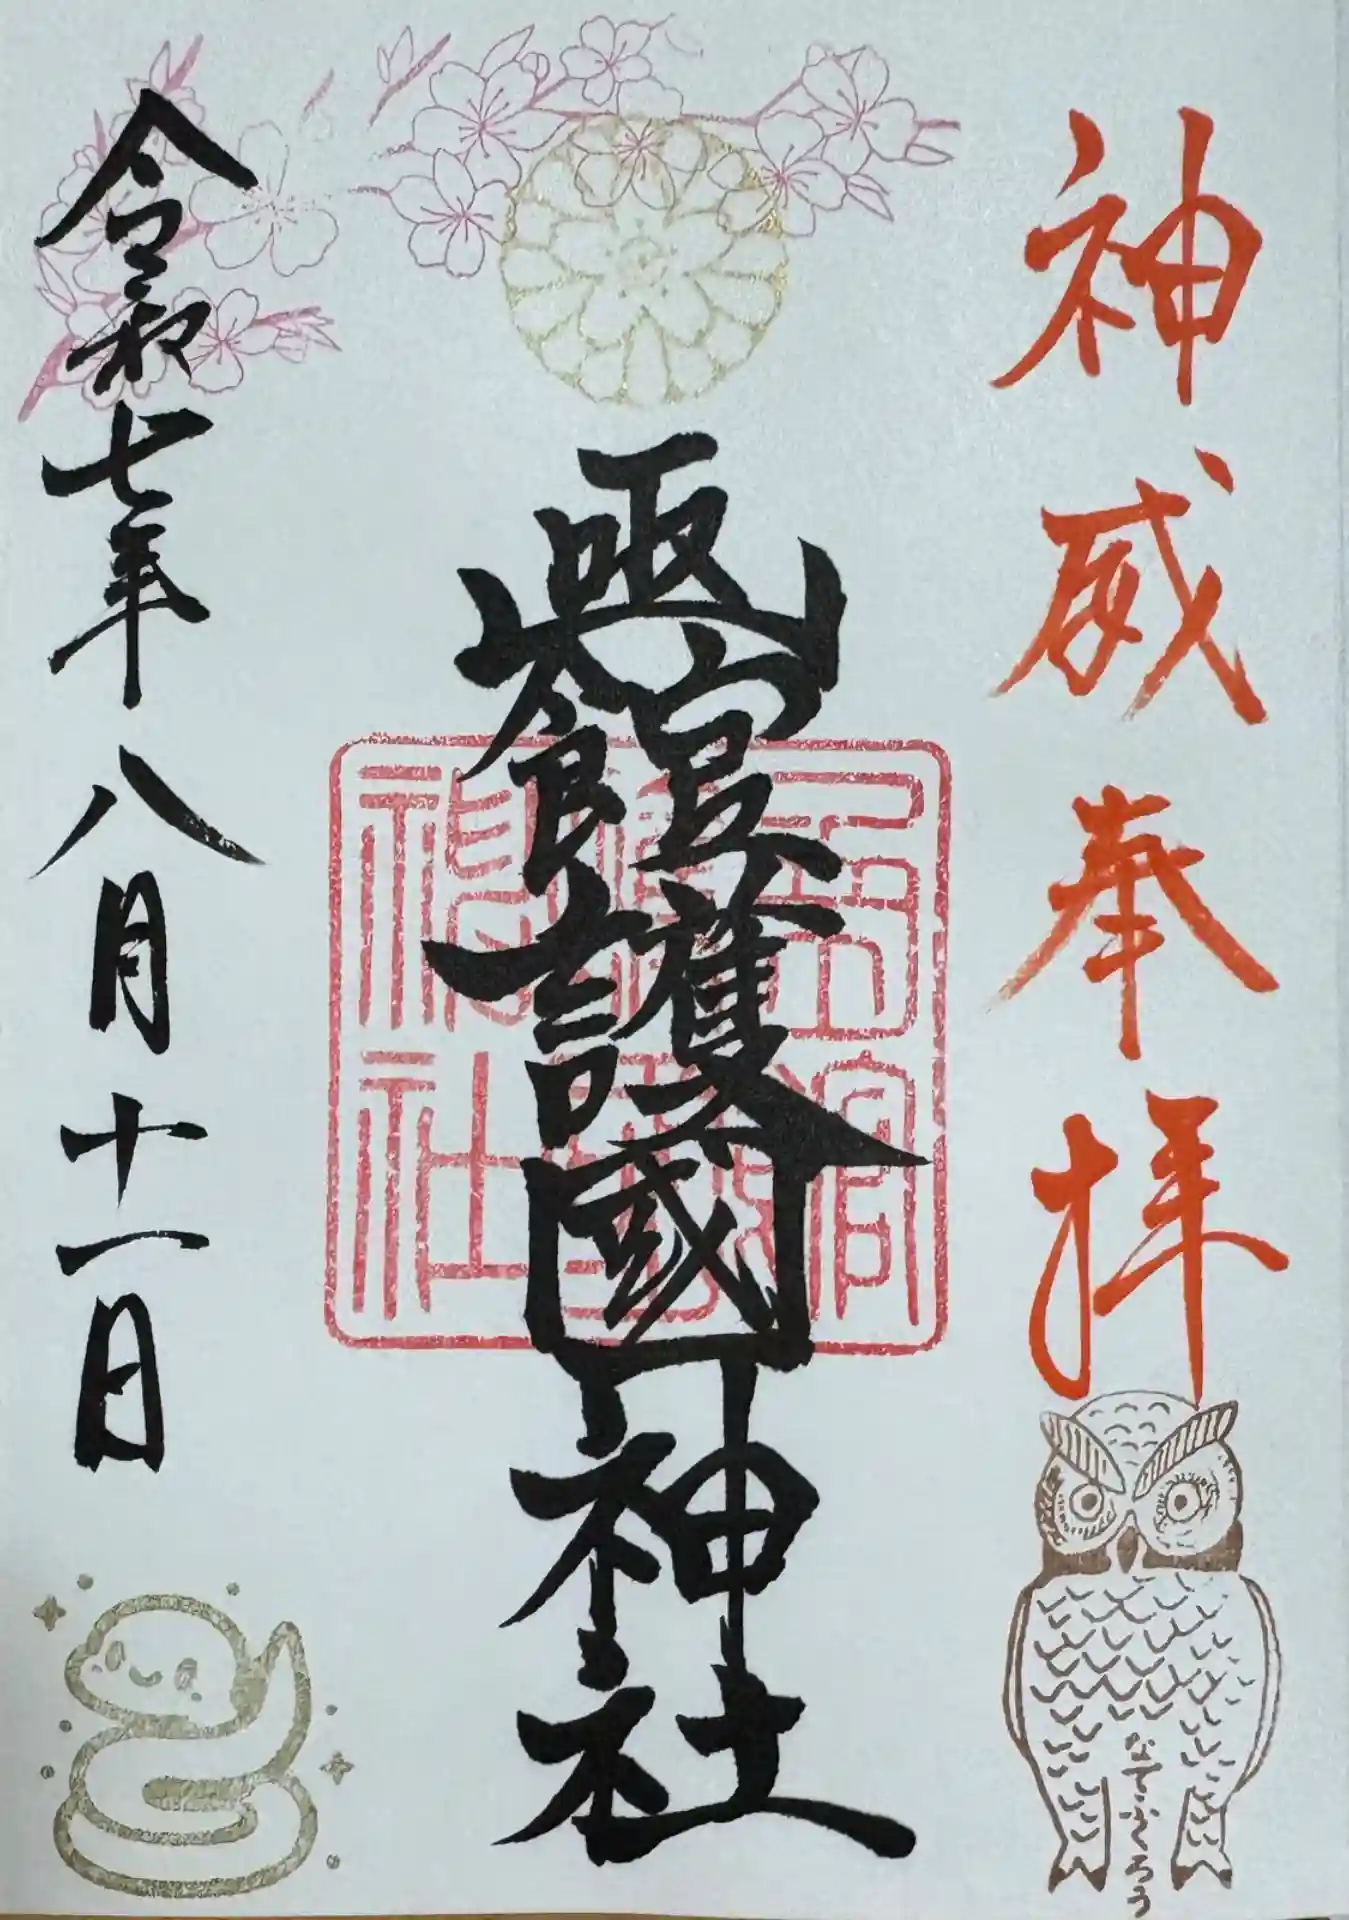 神威奉拝
なでふくろう
凾館護國神社
神社
令和七年八月十一日